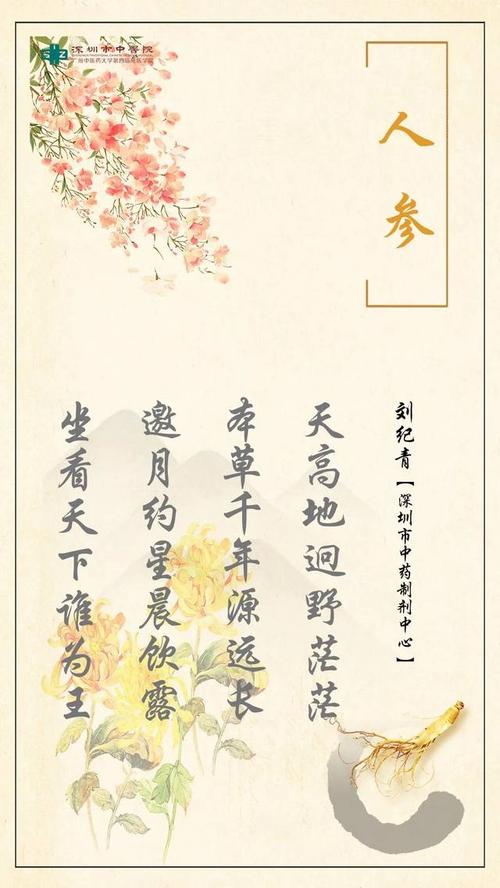 深圳市中医院
广州中医药大学第四临床医学院
人参
刘纪青【深圳市中药制剂中心】
天高地迥野茫茫
本草千年源远长
邀月约星晨饮露
坐看天下谁为王